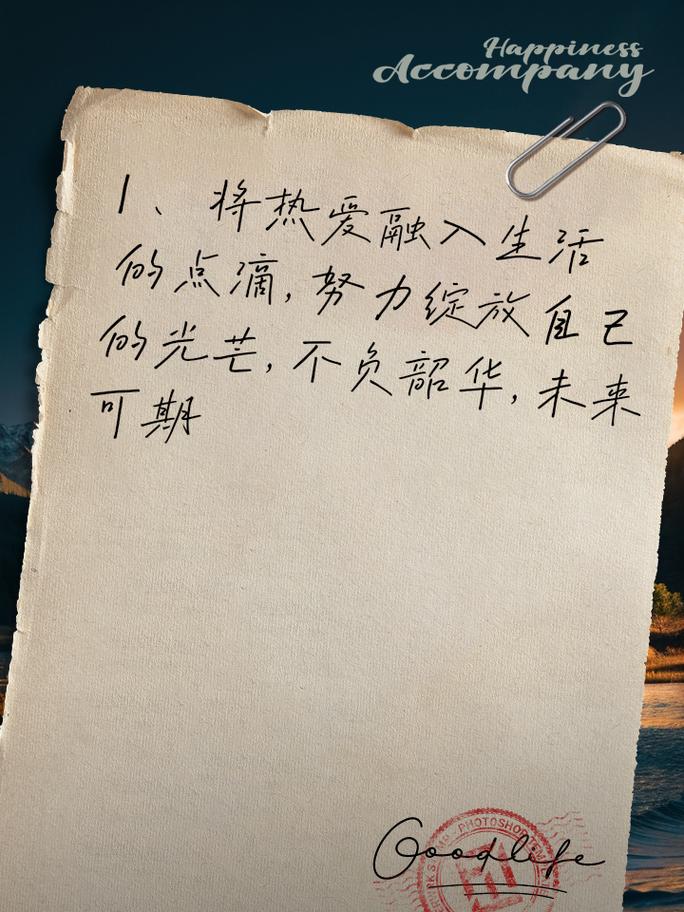 Happiness
Accompany
1、将热爱融入生活
的点滴,努力绽放自己
的光芒,不负韶华,未来
可期
PHOTOSHOP
Goodlife